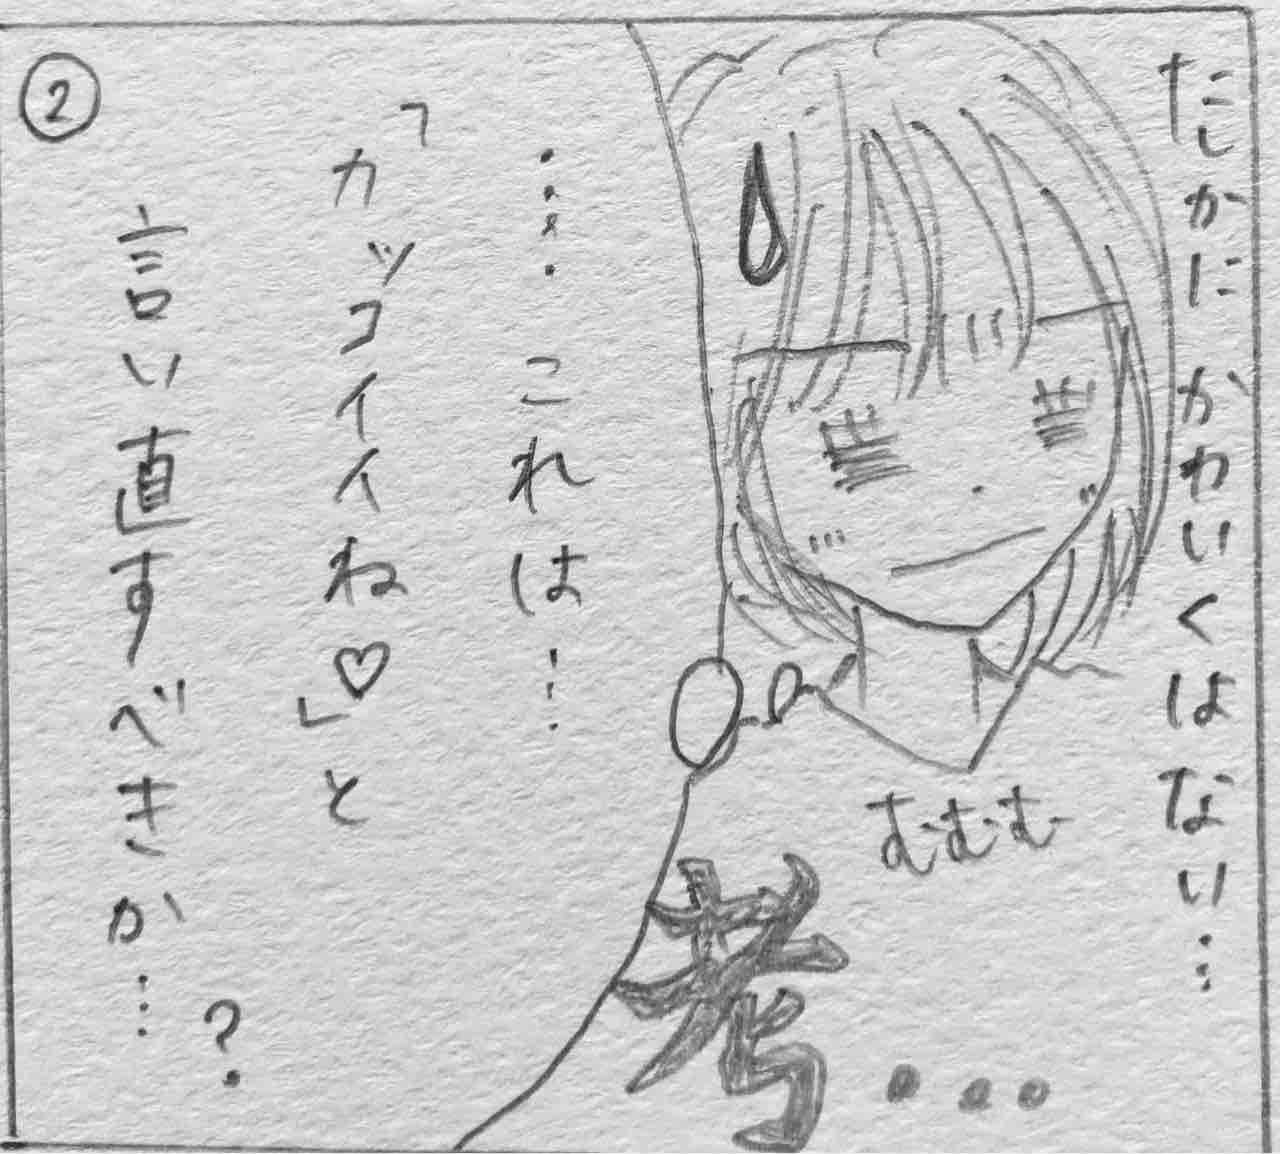 ②
たしかに かわいくはない…
むむむ
考…
…… これは…
「カッコイイね♡」と
言い直すべきか…？